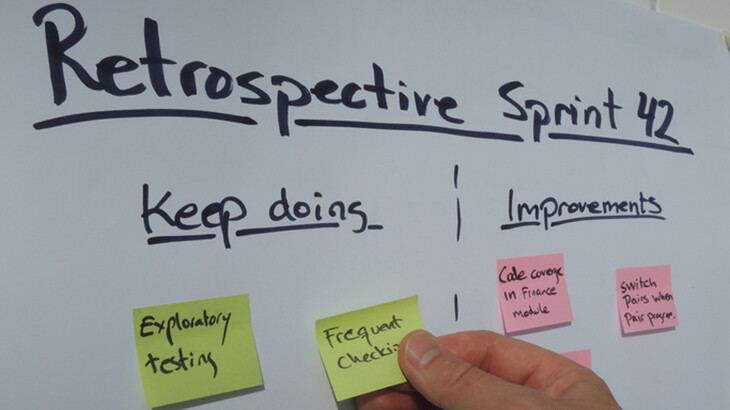 Retrospective Sprint 42
Keep doing
Improvements
Exploratory
testing
Frequent
Code coverage
in Finance
module
Switch
Pairs when
Pair program.